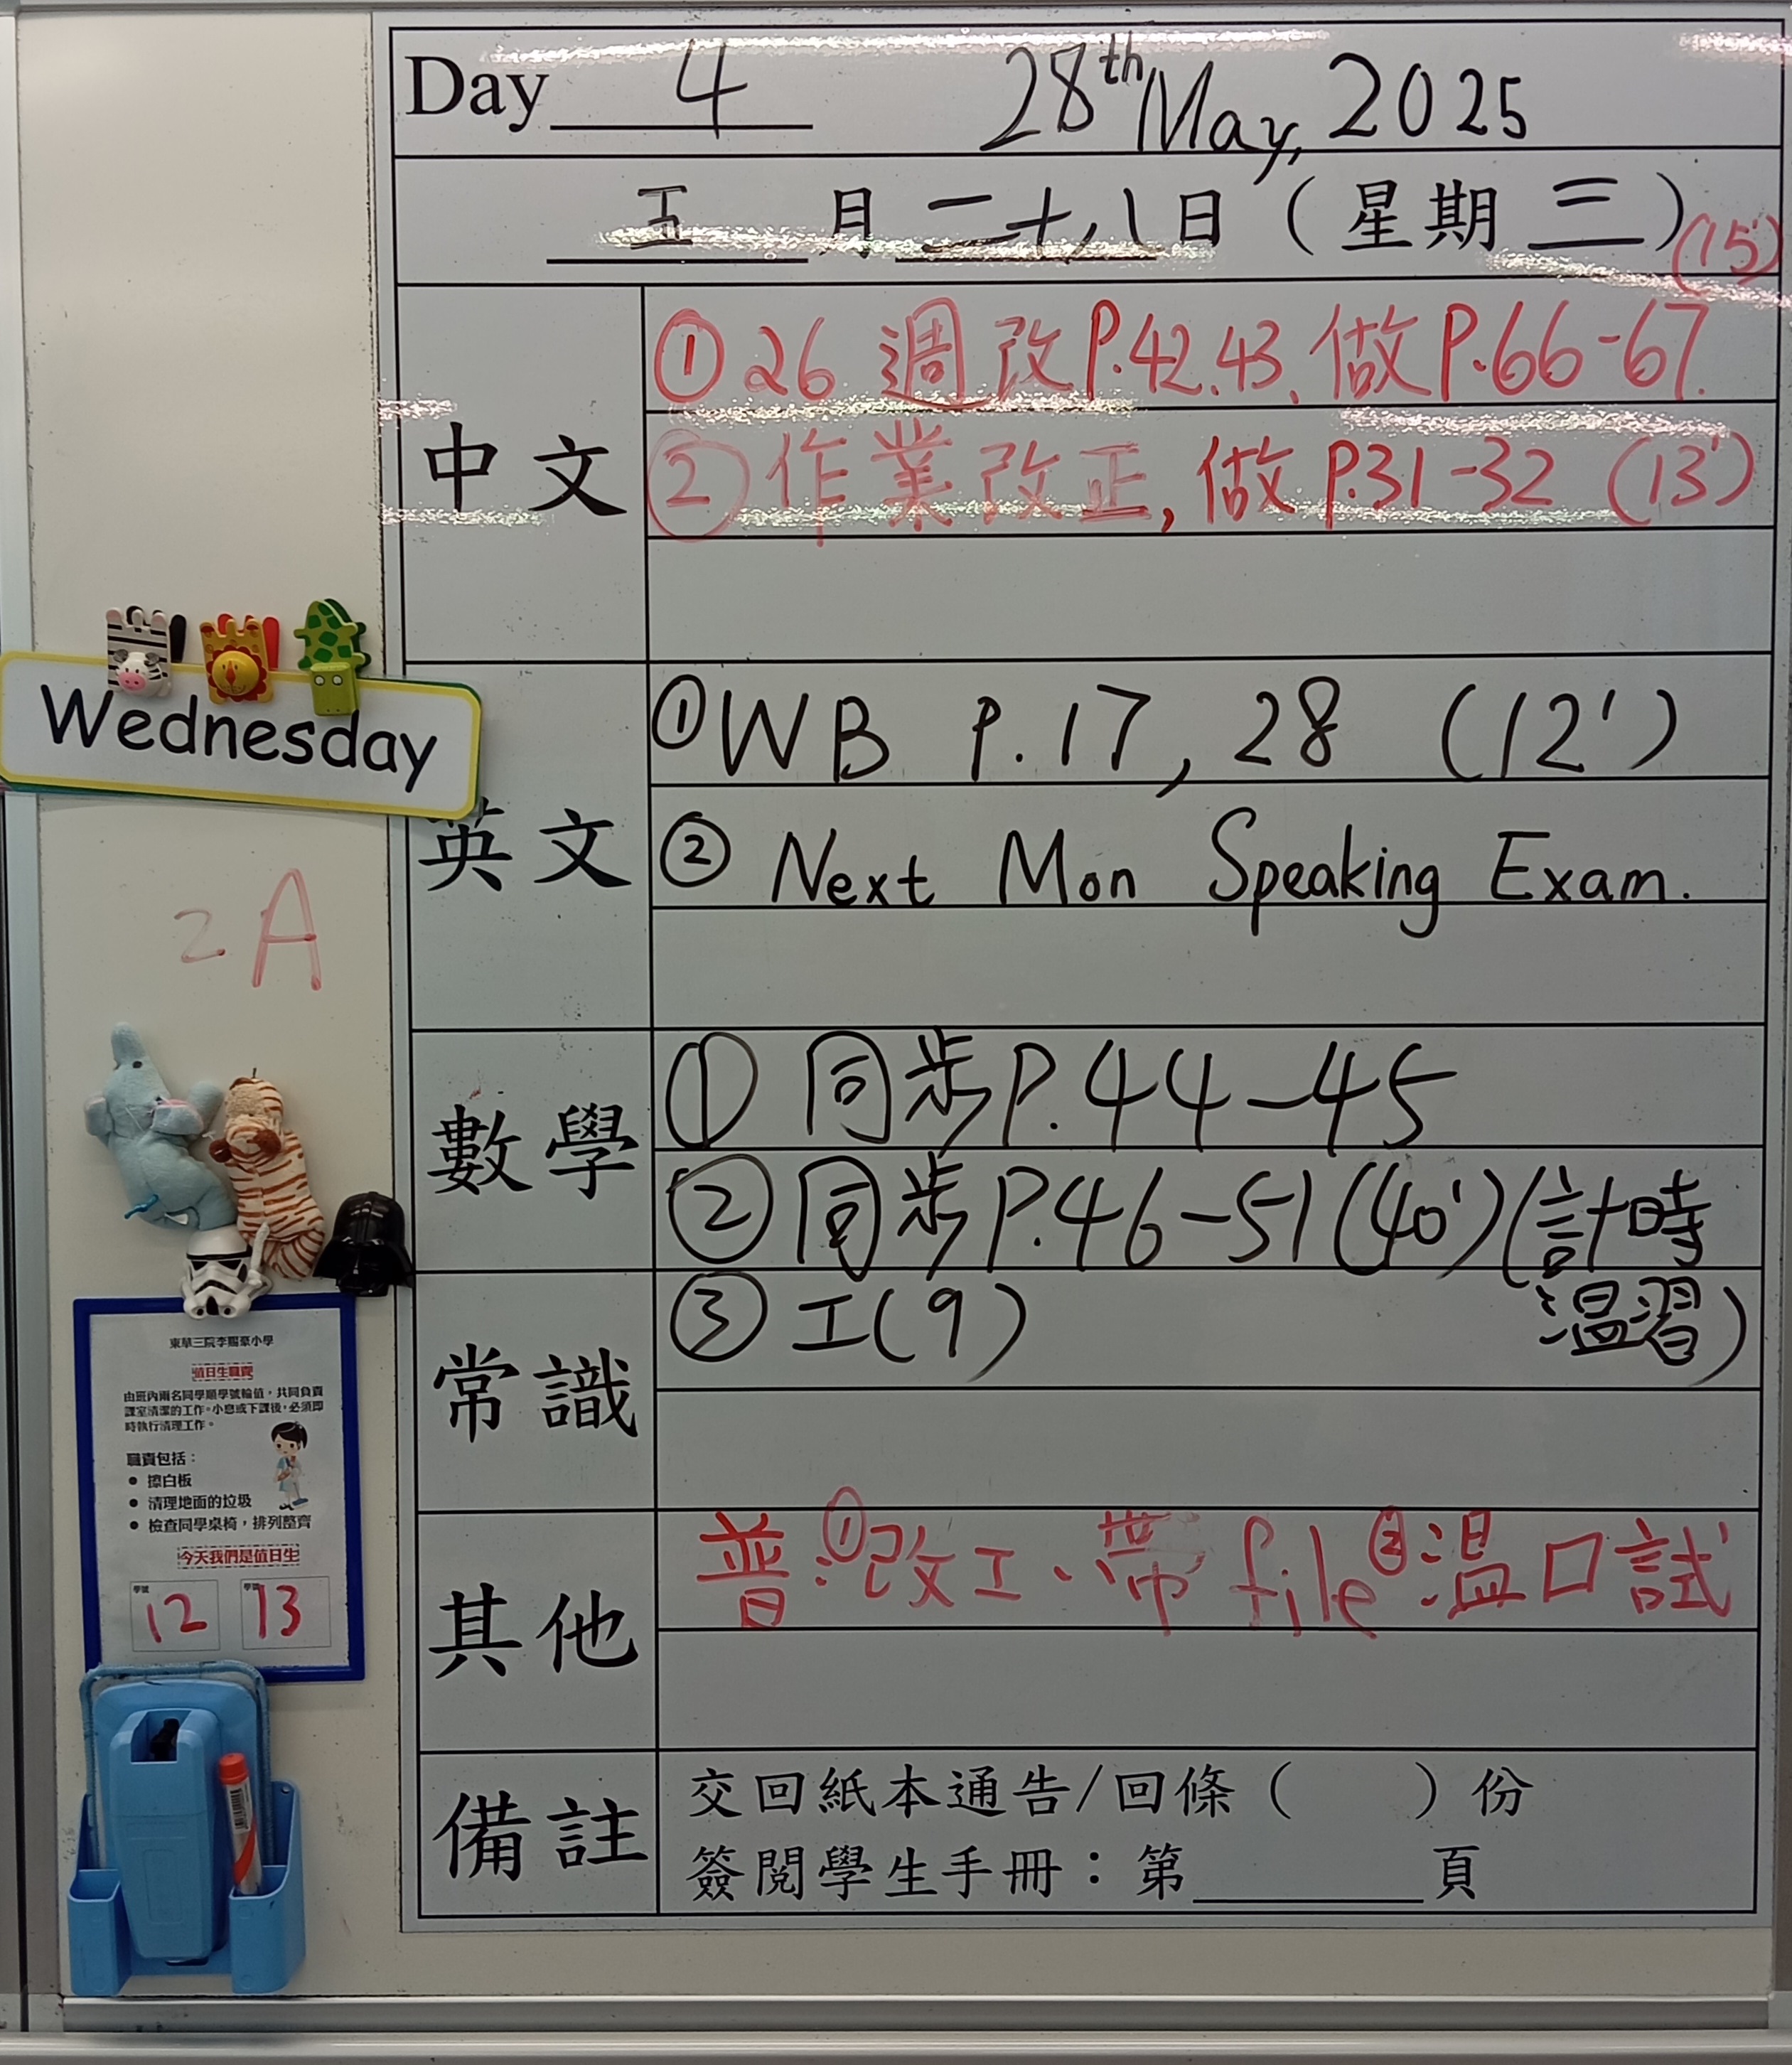 Day 4 28th May, 2025
五 月 二十八 日 (星期 三)
(15')
中文
① 26 週改P.42,43、做P.66-67.
② 作業改正, 做P.31-32 (13')
Wednesday
英文
① WB P.17, 28 (12')
② Next Mon Speaking Exam.
2A
數學
① 同步P.44-45
② 同步P.46-51(40')(計時
温習)
常識
③ 工(9)
東華三院李賜豪小學
值日生職責
由班內兩名同學順學號輪值，共同負責
課室清潔的工作。小息或下課後，必須即
時執行清理工作。
職責包括：
● 擦白板
● 清理地面的垃圾
● 檢查同學桌椅，排列整齊
今天我們是值日生
學號 12 學號 13
其他
普:①改工、帶file②温口試
備註
交回紙本通告/回條（ ）份
簽閱學生手冊：第 頁